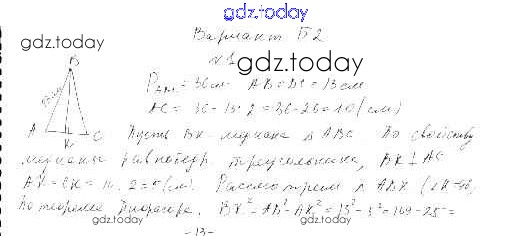 gdz.today
Вариант Б2
gdz.today
№1
gdz.today
B
P_ABC = 36 см AB = BC = 13 см
13 см
AC = 36 - 13·2 = 36 - 26 = 10 (см)
A K C Пусть BK - медиана △ ABC По свойству
медианы равнобедр. треугольника, BK ⊥ AC
AK = CK = 10 : 2 = 5 (см). Рассмотрим △ ABK (∠K=90°)
По теореме Пифагора. BK² = AB² - AK² = 13² - 5² = 169 - 25 =
gdz.today gdz.today
- 13 -